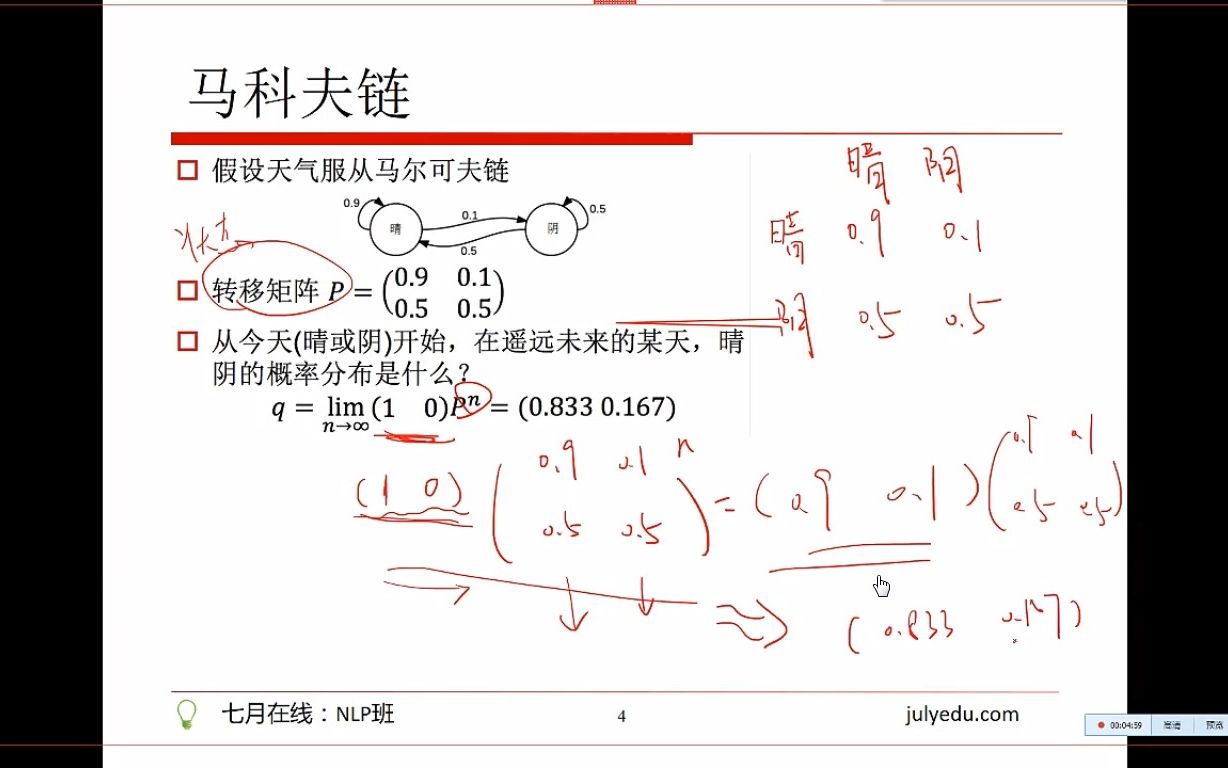 马科夫链
假设天气服从马尔可夫链
0.9 晴 0.1 0.5 阴 0.5
转移矩阵 P = (0.9 0.1
0.5 0.5)
从今天(晴或阴)开始，在遥远未来的某天，晴
阴的概率分布是什么？
q = lim n→∞ (1 0)Pⁿ = (0.833 0.167)
晴 阴
晴 0.9 0.1
阴 0.5 0.5
(1 0) (0.9 0.1
0.5 0.5) n = (0.9 0.1) (0.9 0.1
0.5 0.5)
(0.833 0.167)
七月在线：NLP班
4
julyedu.com
00:04:59 高清 预览